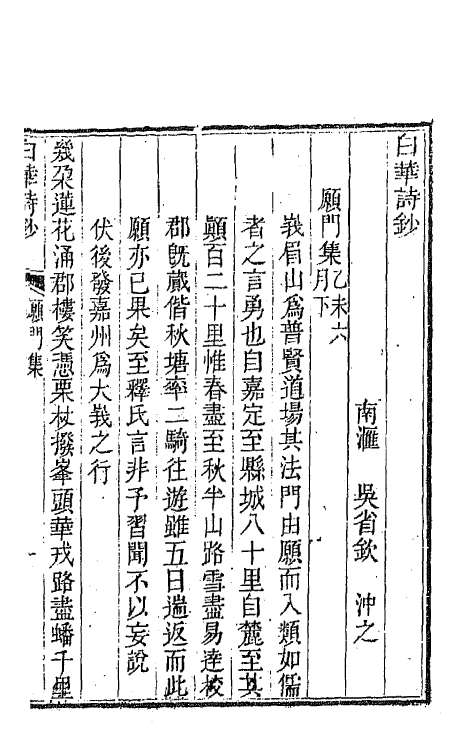 白華詩鈔
南滙 吳省欽 沖之
願門集乙未六月下
峩眉山爲普賢道場其法門由願而入類如儒
者之言勇也自嘉定至縣城八十里自麓至其
顚百二十里惟春盡至秋半山路雪盡易達校
郡旣蕆偕秋塘率二騎往遊雖五日遄返而此
願亦已果矣至釋氏言非予習聞不以妄說
伏後發嘉州爲大峩之行
幾朶蓮花涌郡樓笑憑栗杖撥峯頭華戎路盡蟠千里
白華詩鈔 願門集 一